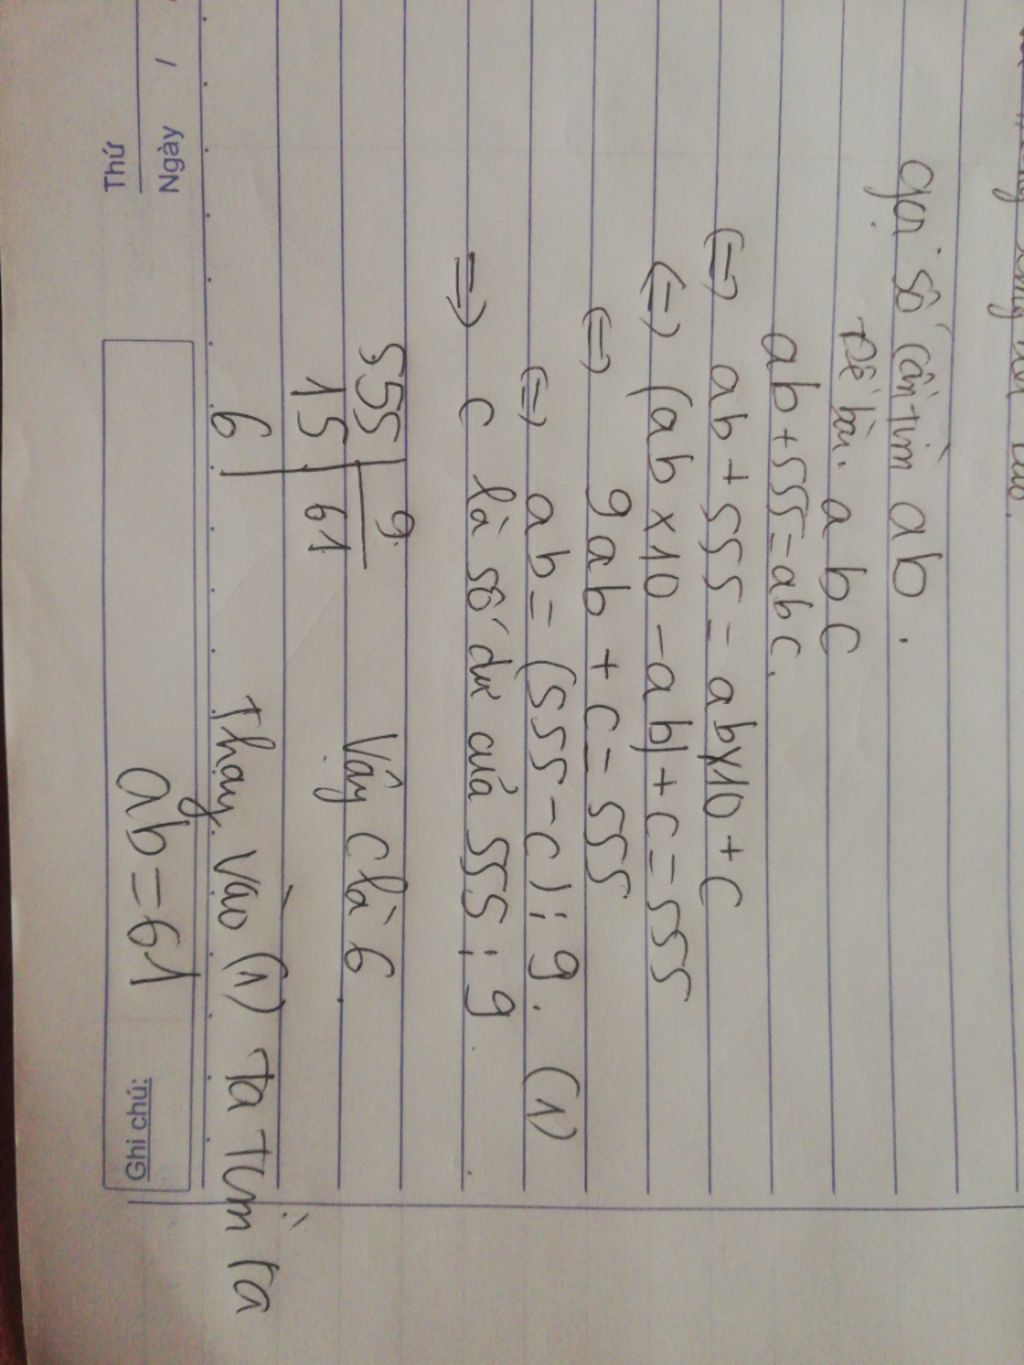 gọi số cần tìm ab.
Đề bài. abc
ab+555=abc.
⇔ ab+555=abx10+c
⇔ (abx10-ab)+c=555
⇔ 9ab+c=555
⇔ ab=(555-c):9. (1)
⇒ c là số dư của 555:9
555 9. Vậy c là 6
15 61
6 Thay vào (1) ta tìm ra
ab=61
Thứ
Ngày /
Ghi chú: